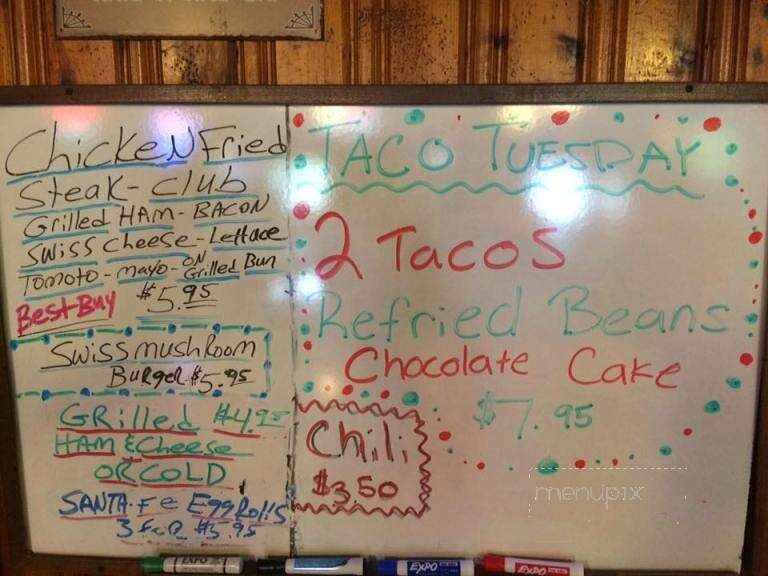 Chicken Fried
Steak - Club
Grilled HAM - BACON
Swiss Cheese - Lettace
Tomoto - mayo - ON Grilled Bun
Best Buy $5.95
Swiss mushRoom
BurgeR $5.95
GRilled $4.95
HAM & Cheese
OR COLD
SANTA-Fe Egg Rolls
3 FOR $3.95
TACO TUESDAY
2 Tacos
Refried Beans
Chocolate Cake
$7.95
Chili
$3.50
menupix
EXPO
EXPO
EXPO